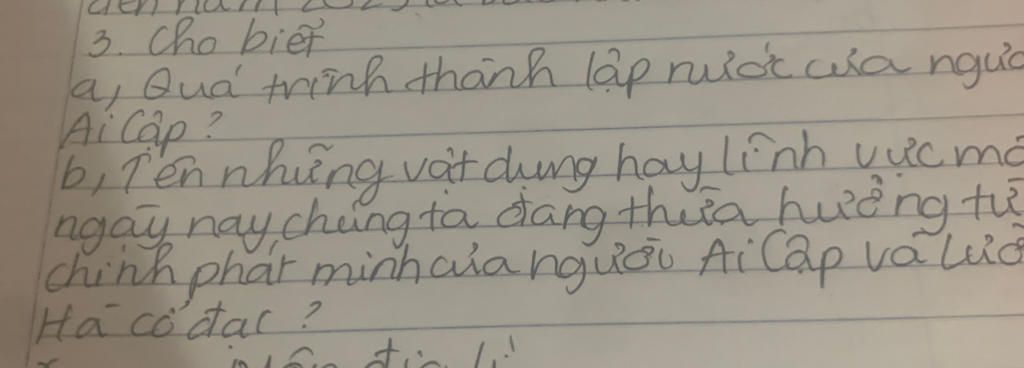 đến năm 2023 là bao
3. Cho biết
a, Quá trình thành lập nước của ngườ
Ai Cập?
b, Tên những vật dụng hay lĩnh vực mà
ngày nay chúng ta đang thừa hưởng từ
chính phát minh của người Ai Cập và Lưỡ
Hà cổ đạc?